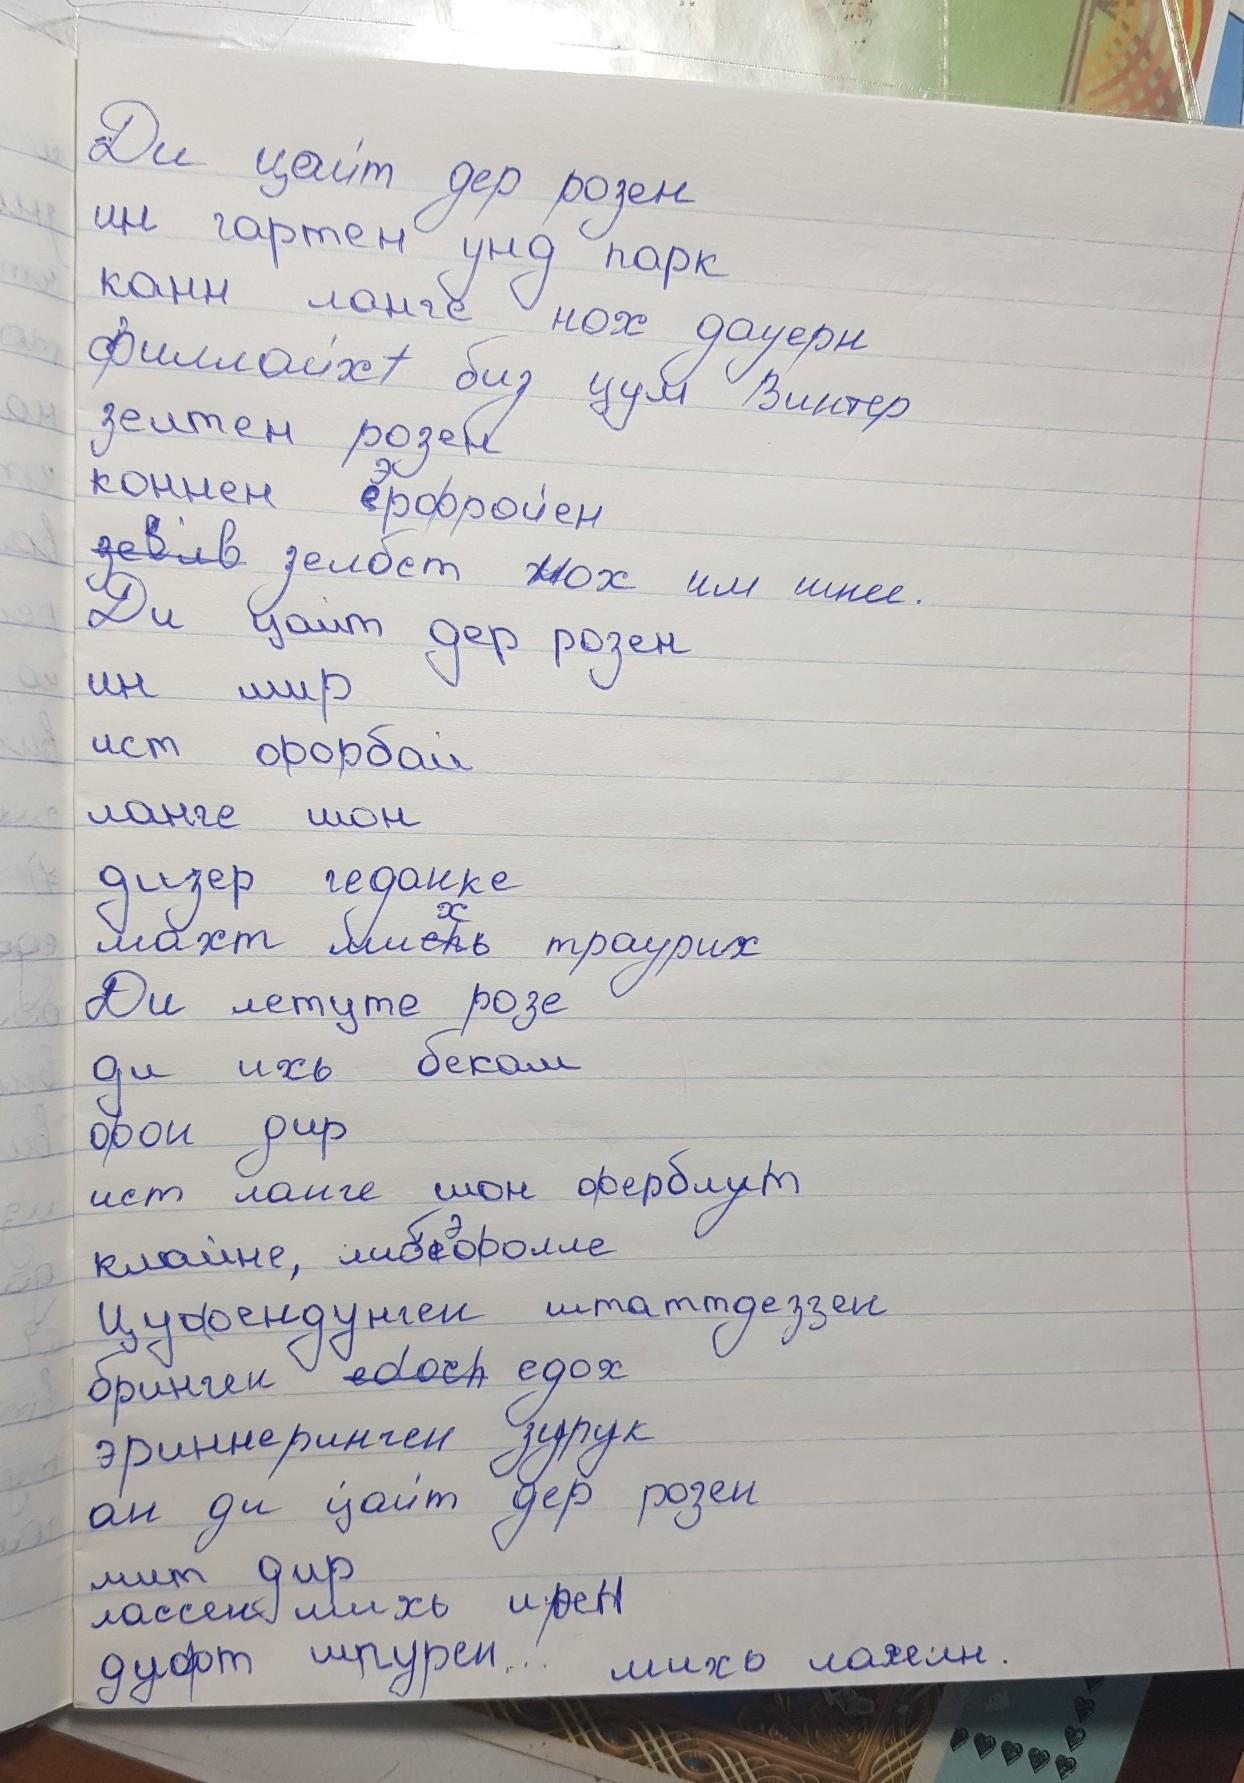 Ди цайт дер розен
ин гартен унд парк
канн ланге нох дауерн
филлайхt биз цум Винтер
зелтен розен
коннен эрфройен
зелбст нох им шнее.
Ди цайт дер розен
ин мир
ист форбай
ланге шон
дизер геданке
махт михь траурих
Ди летцте розе
ди ихь бекам
фон дир
ист ланге шон ферблут
клайне, либэфолле
Цуфендунген штаттдеззен
бринген edoch едох
эриннеринген зурук
ан ди цайт дер розен
мит дир
лассен михь ирен
дуфт шпурен... михь лахелн.